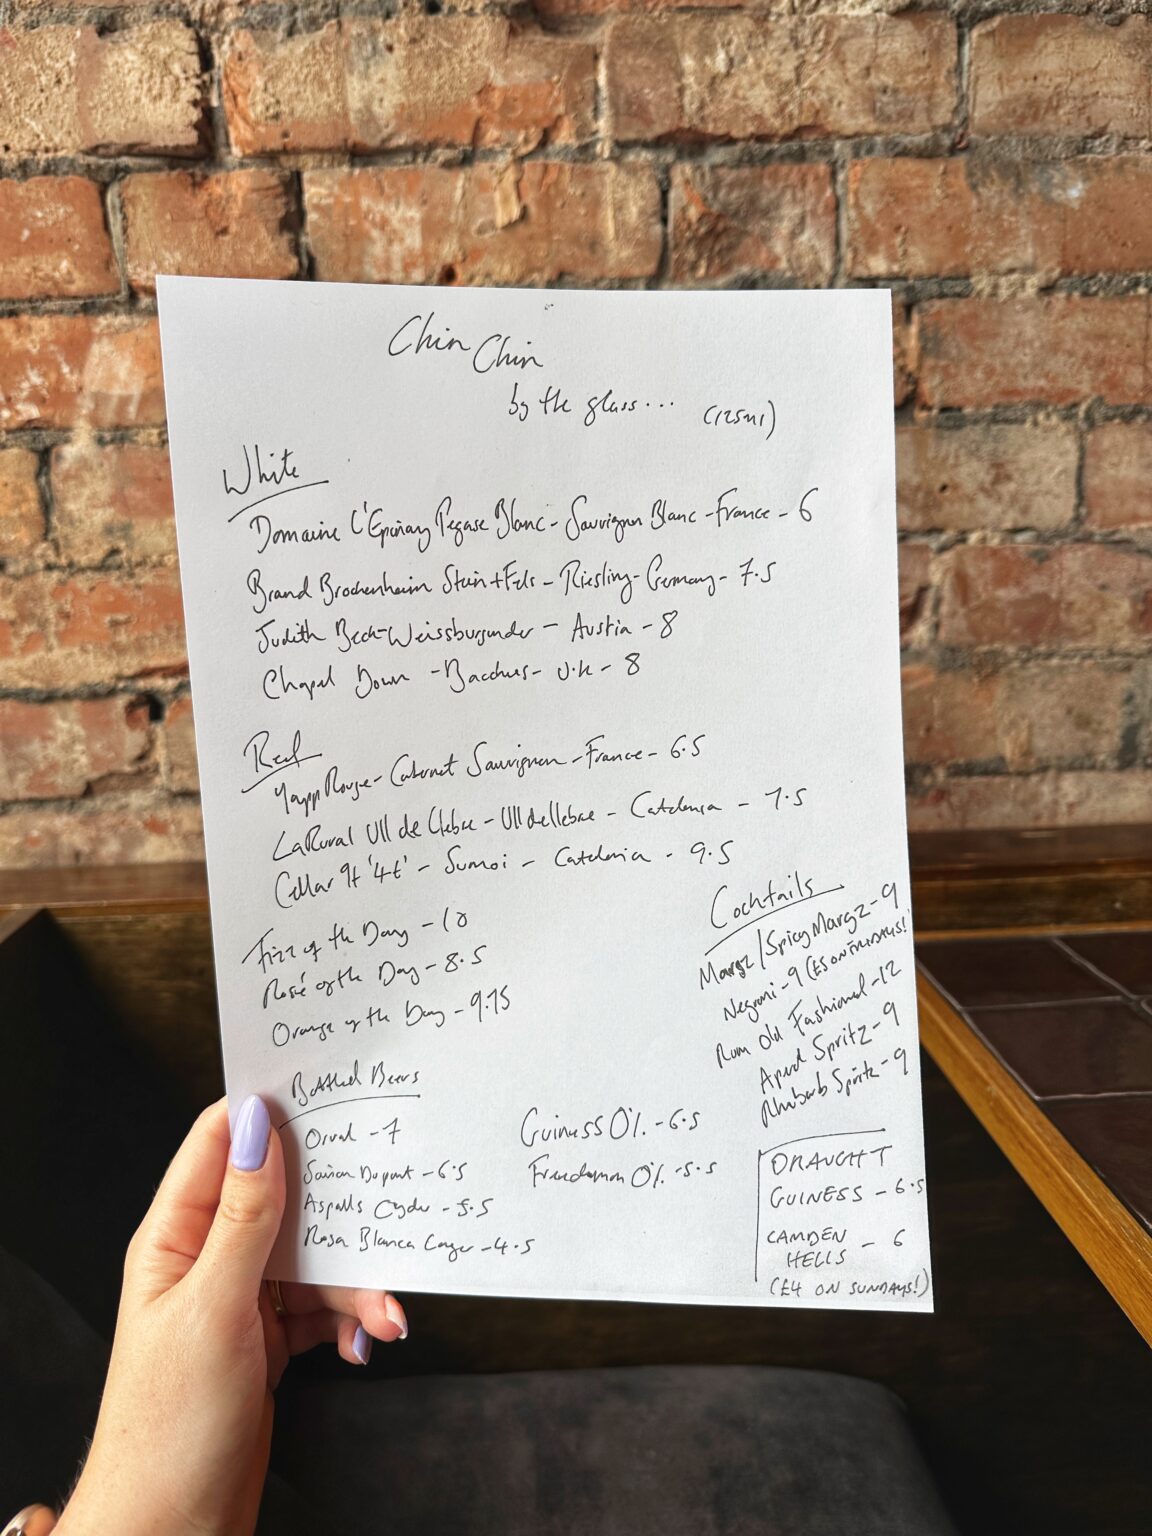 Chin Chin
by the glass... (125ml)
White
Domaine L'Epinay Pegase Blanc - Sauvignon Blanc - France - 6
Brand Brockenheim Stein + Fels - Riesling - Germany - 7.5
Judith Beck - Weissburgunder - Austria - 8
Chapel Down - Bacchus - U.K - 8
Red
Yapp Rouge - Cabernet Sauvignon - France - 6.5
LaRural Ull de Llebre - Ull de llebre - Catalonia - 7.5
Cellar 9+ '4t' - Sumoi - Catalonia - 9.5
Fizz of the Day - 10
Rosé of the Day - 8.5
Orange of the Day - 9.75
Cocktails
Margz/Spicy Margz - 9
Negroni - 9 (£5 ON THURSDAYS!
Rum Old Fashioned - 12
Aperol Spritz - 9
Rhubarb Spritz - 9
Bottled Beers
Orval - 7
Saison Dupont - 6.5
Aspalls Cyder - 5.5
Rosa Blanca Lager - 4.5
Guiness 0% - 6.5
Freedamm 0% - 5.5
DRAUGHT
GUINESS - 6.5
CAMDEN HELLS - 6
(£4 ON SUNDAYS!)